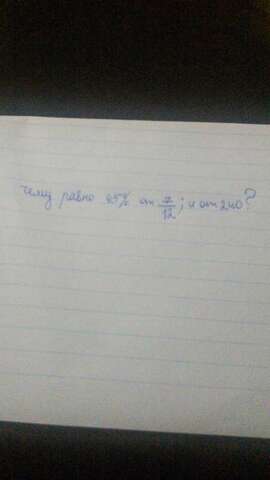 чему равно 65% от 7/12; и от 240?